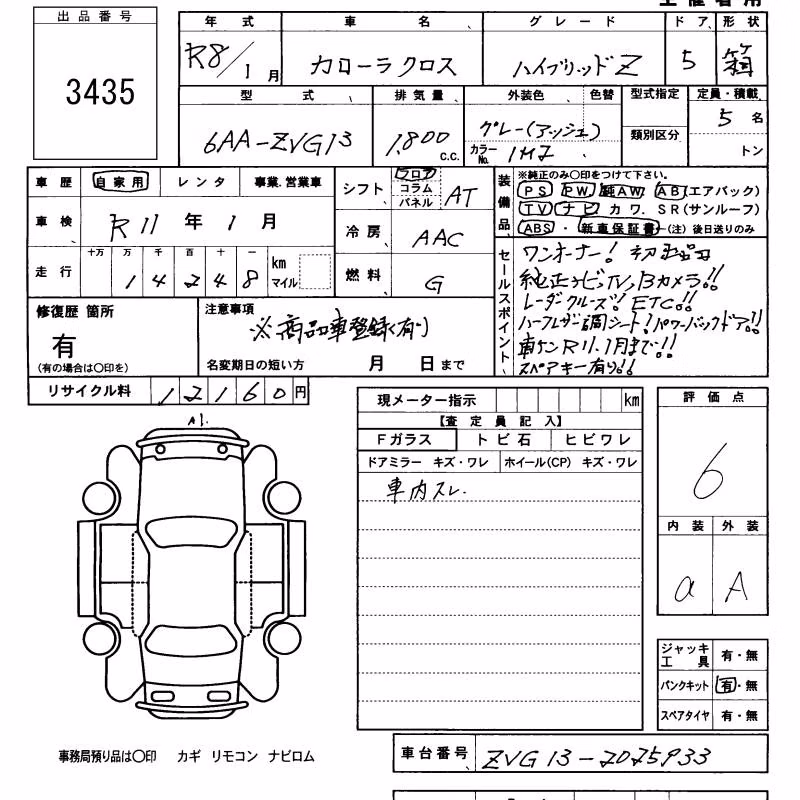 出品番号
3435
年式 車名 グレード ドア 形状
R8/1月 カローラクロス ハイブリッドZ 5 箱
型式 排気量 外装色 色替 型式指定 定員・積載
6AA-ZVG13 1,800 c.c. グレー(アッシュ) 類別区分 5名
カラーNo. 1H2 トン
車歴 自家用 レンタ 事業.営業車
車検 R11年1月
走行 十万 万 千 百 十 一
14248 km マイル
シフト フロア コラム パネル AT
冷房 AAC
燃料 G
装備品 ※純正のみ〇印をつけて下さい。
PS PW 純AW AB(エアバック)
TV ナビ カワ. SR(サンルーフ)
ABS ・ 新車保証書 (注)後日送りのみ
セールスポイント
ワンオーナー! 初出品
純正ナビ、TV、Bカメラ!!
レーダクルーズ! ETC!!
ハーフレザー調シート!パワーバックドア!!
車ケンR11.1月まで!!
スペアキー有り!!
修復歴 箇所
有
(有の場合は〇印を)
注意事項
※商品車登録(有り)
名変期日の短い方 月 日まで
リサイクル料 12160円
現メーター指示 km
【査定員記入】
Fガラス トビ石 ヒビワレ
ドアミラー キズ・ワレ ホイール(CP) キズ・ワレ
車内スレ
評価点
6
内装 外装
a A
ジャッキ工具 有・無
パンクキット 有・無
スペアタイヤ 有・無
A1
事務局預り品は〇印 カギ リモコン ナビロム
車台番号 ZVG13-2025933